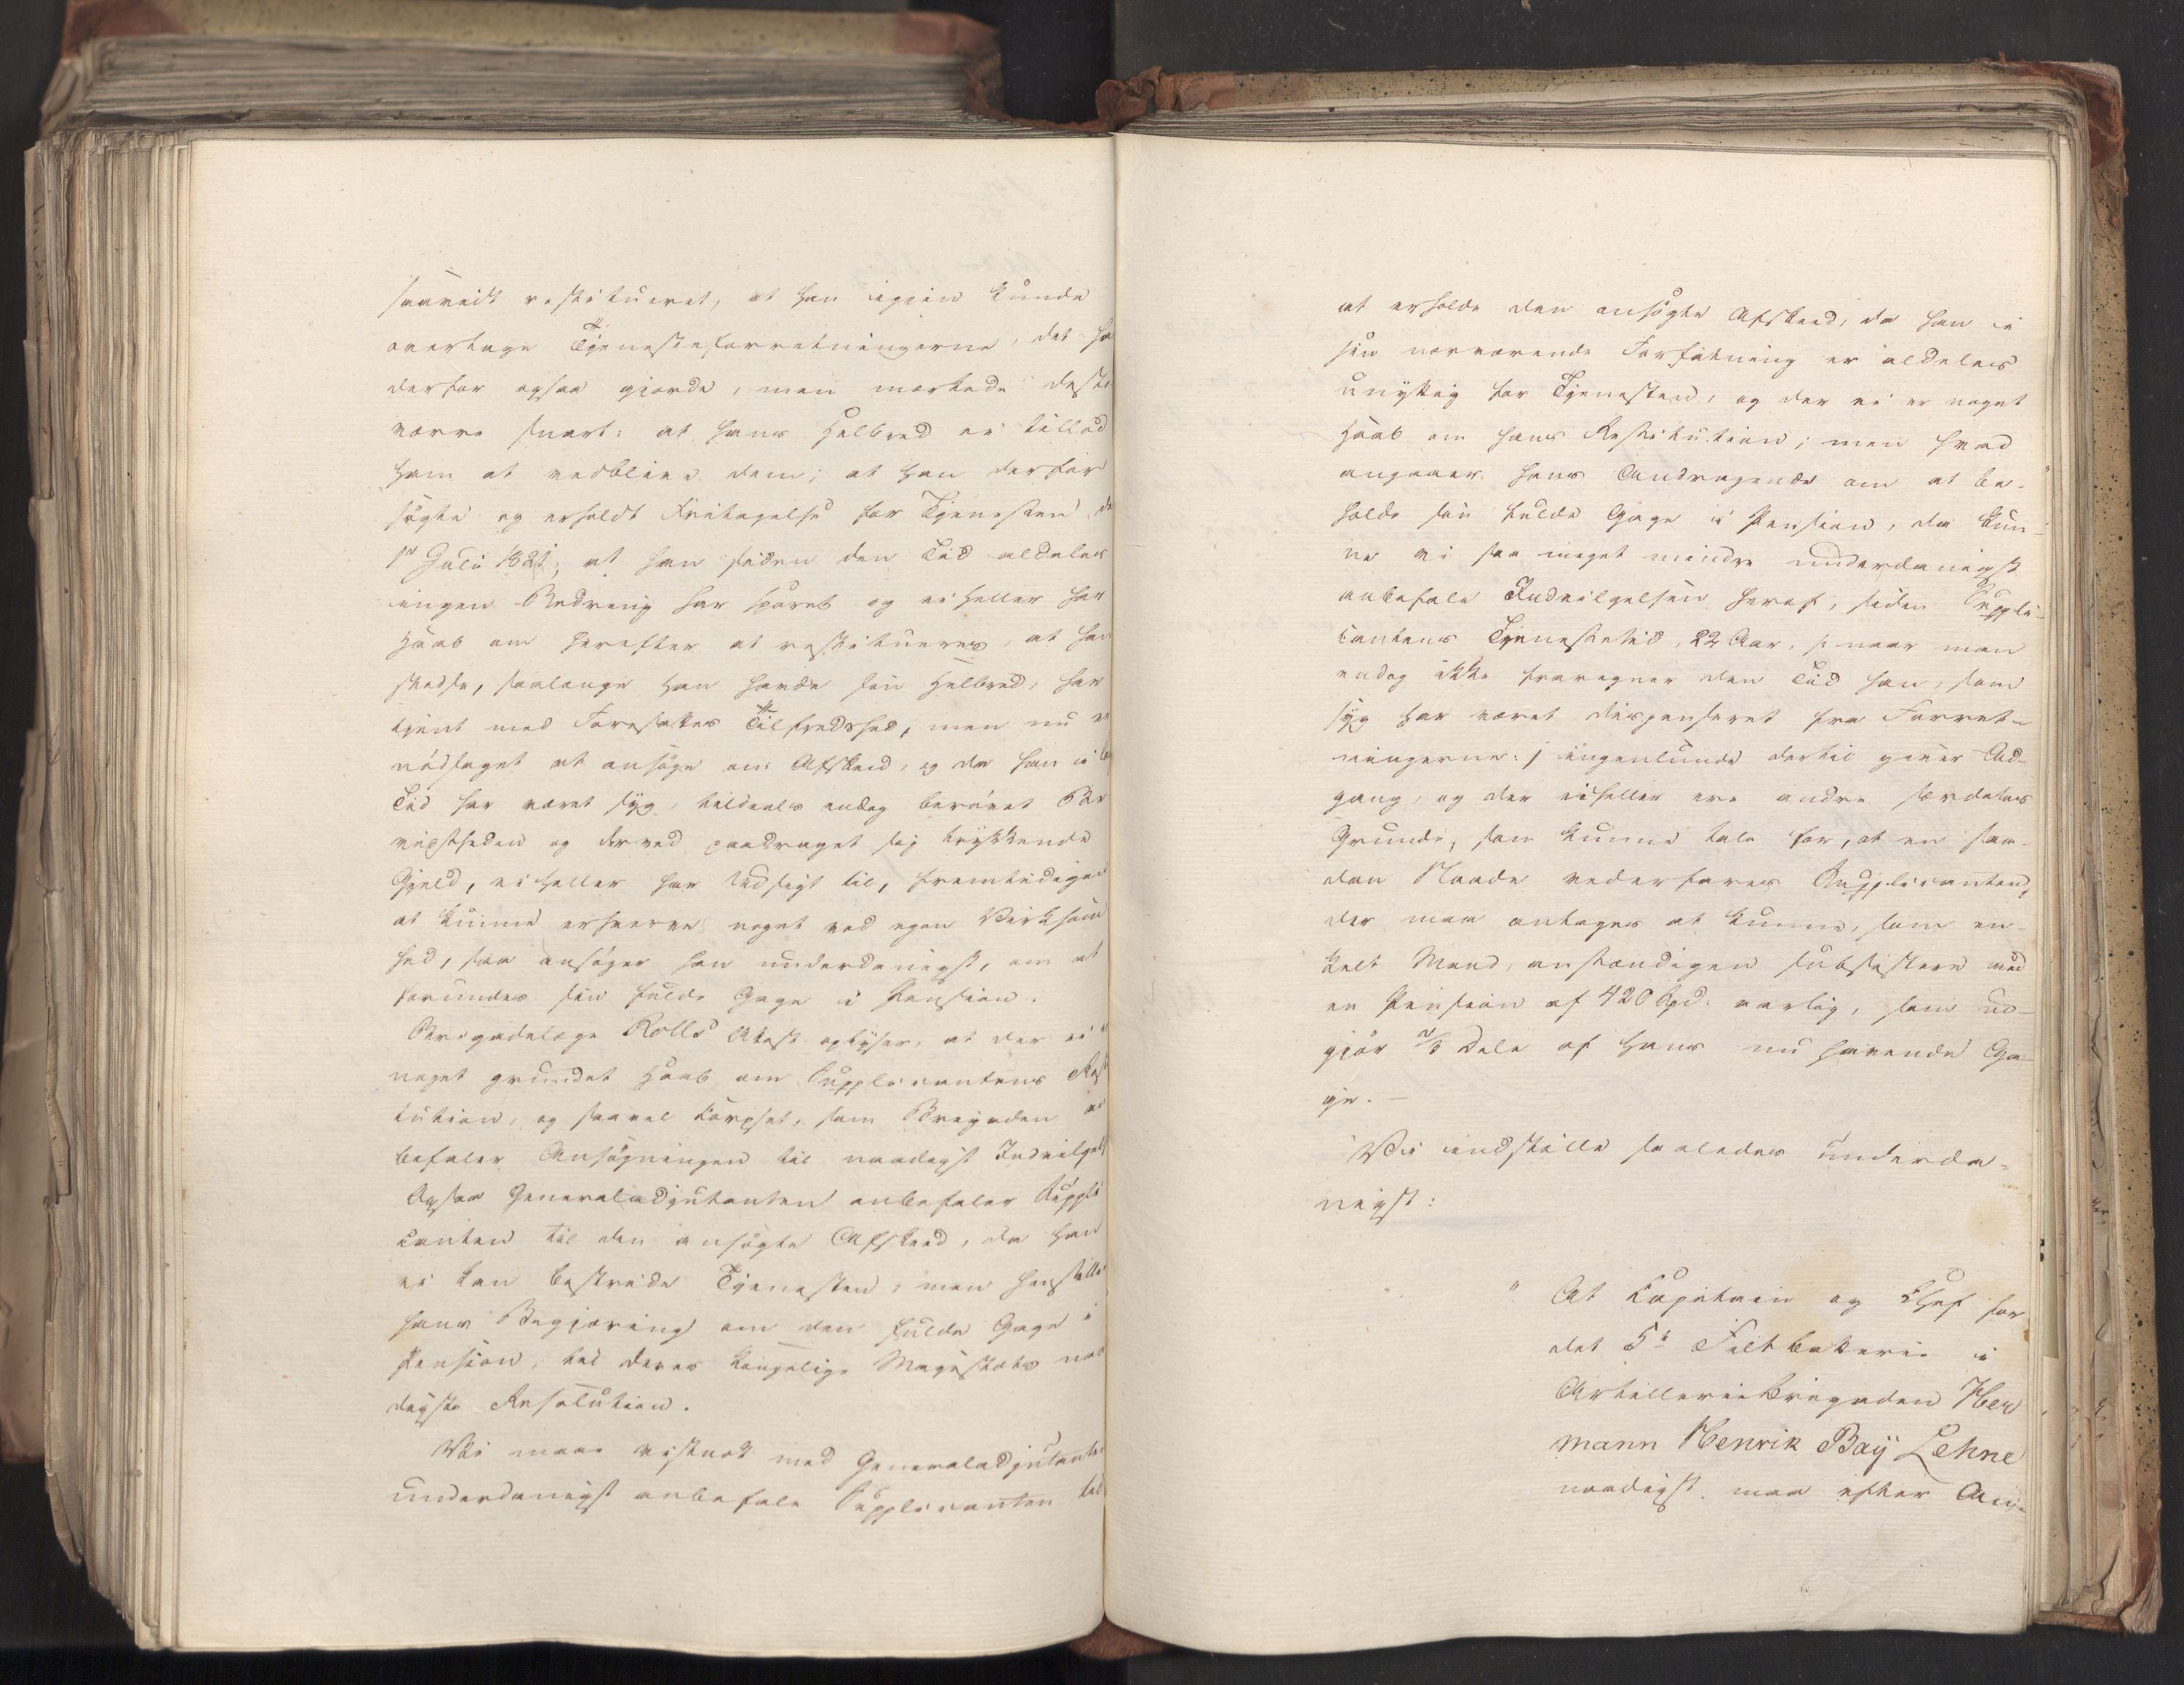 saavidt restitueret, at han igjen kunde
overtage Tjenesteforretningerne, det ha
derfor ogsaa gjorde, men mærkede desto
værre snart: at hans Helbred ei tillod
ham at vedblive dem; at han derfor
søgte og erholdt Fritagelse for Tjenesten d
1ste Juli 1821; at han siden den Tid aldeles
ingen Bedring har sporet og ei heller har
Haab om herefter at restitueres, at han
stedse, saalænge han havde sin Helbred, har
tjent med Foresattes Tilfredshed, men nu er
nødsaget at ansøge om Afskeed, og da han i
Tid har været syg, tildeels endog berøvet Be
vidstheden og derved paadraget sig trykkende
Gjæld, ei heller har Udsigt til, fremtidigen
at kunne erhverve noget ved egen Virksom
hed, saa ansøger han underdanigst, om at
forundes sin fulde Gage i Pension.
Brigadelæge Rolls Attest oplyser, at der ei
noget grundet Haab om Supplicantens Resti
tution, og saavel Corpset, som Brigaden an
befaler Ansøgningen til naadigst Indvilgels
Ogsaa Generaladjutanten anbefaler Suppli
canten til den ansøgte Afskeed, da han
ei kan bestride Tjenesten, men henstiller
hans Begjæring om den fulde Gage i
Pension, til Deres Kongelige Majestæts naa
digste Resolution.
Vi maae vistnok med Generaladjutanten
underdanigst anbefale Supplicanten til
at erholde den ansøgte Afskeed, da han i
sin nærværende Forfatning er aldeles
unyttig for Tjenesten, og der ei er noget
Haab om hans Restitution; men hvad
angaaer hans Andragende om at be-
holde sin fulde Gage i Pension, da kun-
ne vi saa meget mindre underdanigst
anbefale Indvilgelsen heraf, siden Suppli-
cantens Tjenestetid, 22 Aar, /: naar man
endog ikke fraregner den Tid han, som
syg har været dispenseret fra Forret-
ningerne :/ ingenlunde dertil giver Ad-
gang, og der eiheller ere andre særdeles
Grunde, som kunne tale for, at en saa-
dan Naade vederfares Supplicanten,
der maa antages at kunne, som en-
kelt Mand, anstændigen subsistere med
en Pension af 420 Spd: aarlig, som ud-
gjør 2/3 Dele af hans nu havende Ga-
ge. —
Vi indstille saaledes underda-
nigst:
" At Capitain og Chef for
det 5te Feltbatterie i
Artilleriebrigaden Her
mann Henrik Baÿ Lehne
naadigst maa efter An-